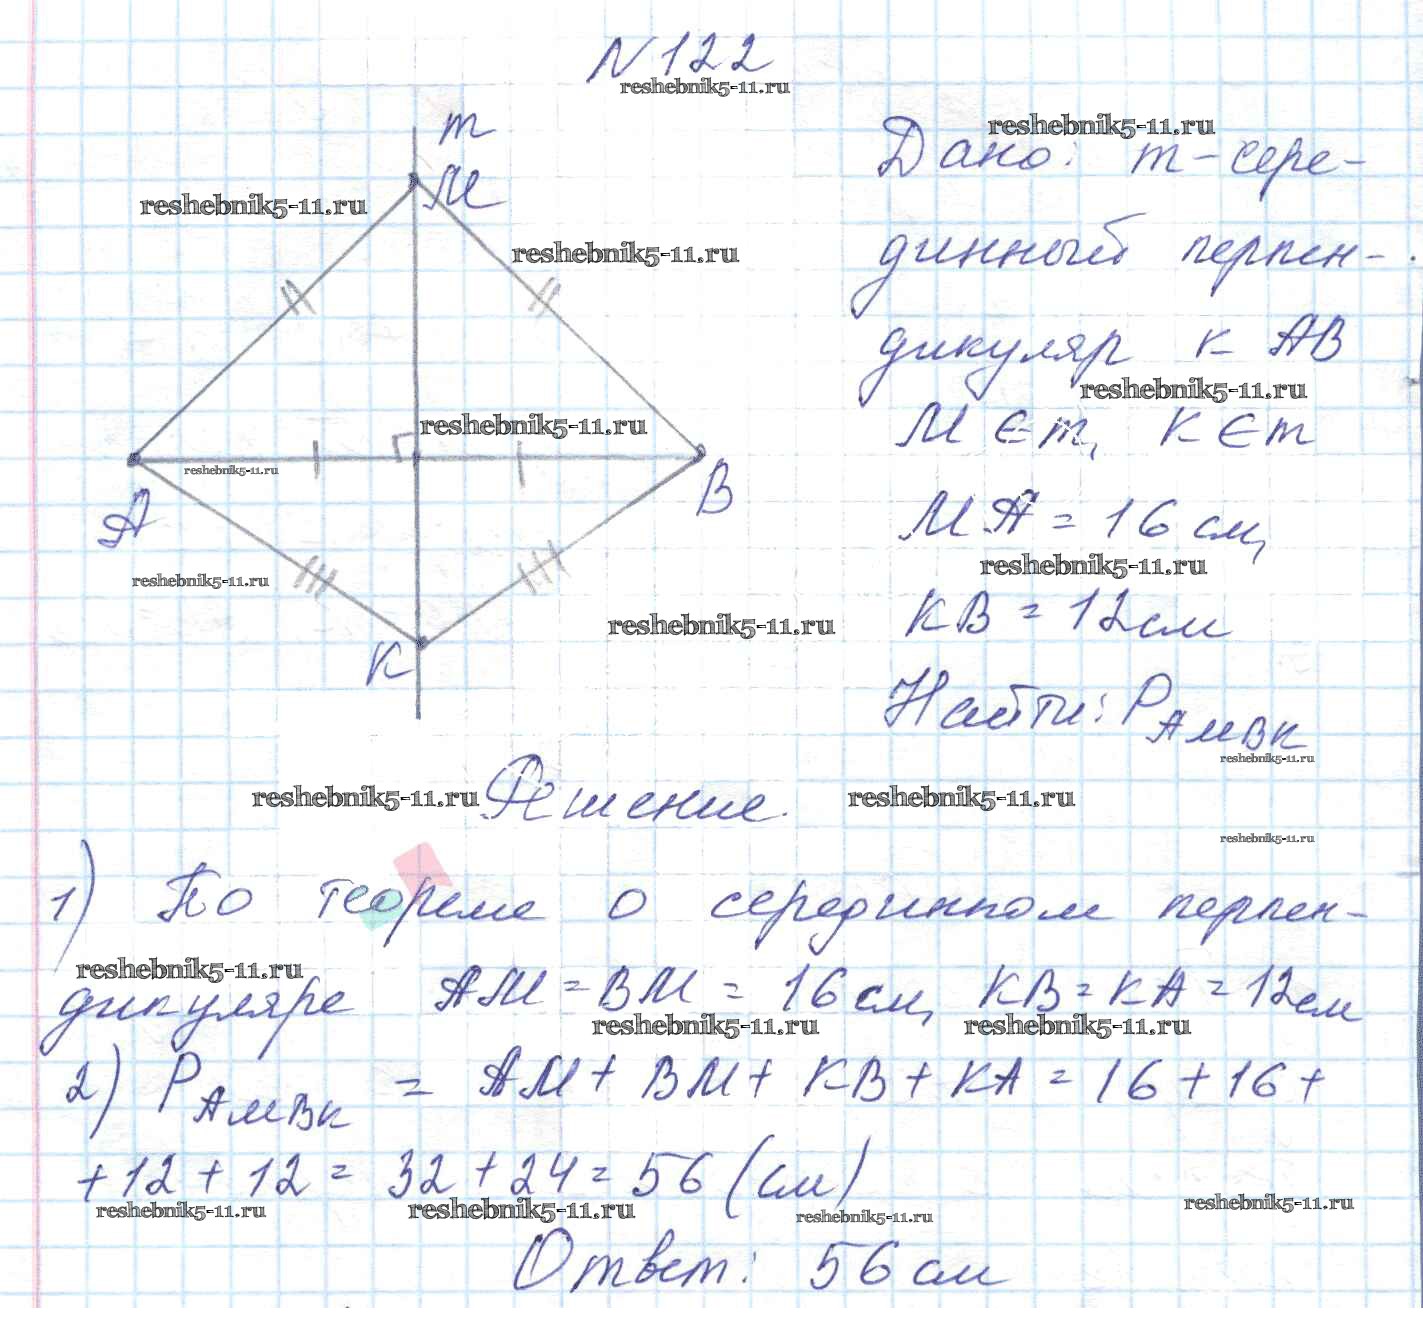 N 122
reshebnik5-11.ru
m
M
reshebnik5-11.ru
reshebnik5-11.ru
reshebnik5-11.ru
reshebnik5-11.ru
A
B
reshebnik5-11.ru
reshebnik5-11.ru
K
reshebnik5-11.ru
Дано: m - сере-
динный перпен-
дикуляр к AB
reshebnik5-11.ru
M ∈ m, K ∈ m
MA = 16 см,
reshebnik5-11.ru
KB = 12 см
Найти: P AMBK
reshebnik5-11.ru
reshebnik5-11.ru Решение. reshebnik5-11.ru
reshebnik5-11.ru
1) По теореме о серединном перпен-
reshebnik5-11.ru
дикуляре AM = BM = 16 см, KB = KA = 12 см
reshebnik5-11.ru reshebnik5-11.ru
2) P AMBK = AM + BM + KB + KA = 16 + 16 +
+ 12 + 12 = 32 + 24 = 56 (см)
reshebnik5-11.ru reshebnik5-11.ru reshebnik5-11.ru reshebnik5-11.ru
Ответ: 56 см